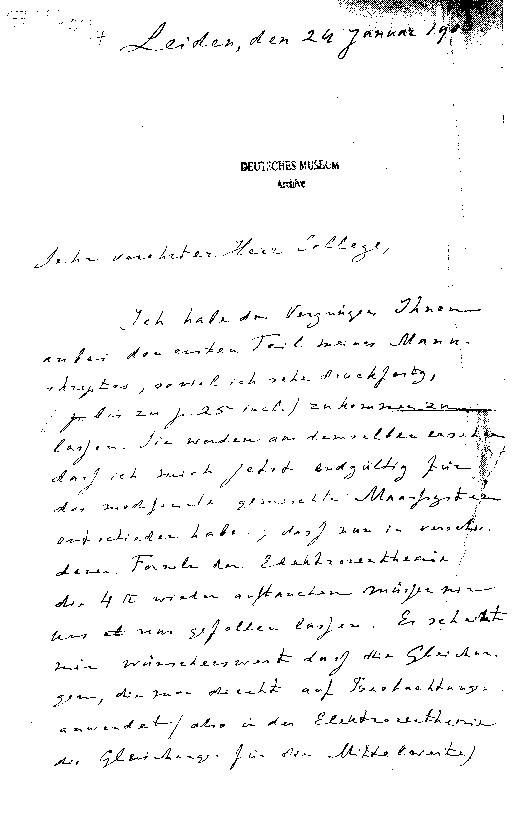 Leiden, den 24 Januar 190
DEUTSCHES MUSEUM
Archive
Sehr verehrter Herr College,
Ich habe das Vergnügen Ihnen
anbei den ersten Teil meines Manu-
skriptes, soviel ich sehe druckfertig,
(p. bis zu p. 25 incl.) zukommen zu
lassen. Sie werden aus demselben ersehen
dass ich mich jetzt endgültig für
das modificirte gemischte Maasssystem
entschieden habe; dass nun in verschie-
denen Formeln der Elektronentheorie
die 4π wieder auftauchen müssen wir
uns nun gefallen lassen. Es scheint
mir wünschenswert dass die Gleichun-
gen, die man direkt auf Beobachtungen
anwendet (also in der Elektronentheorie
die Gleichungen für die Mittelwerte)